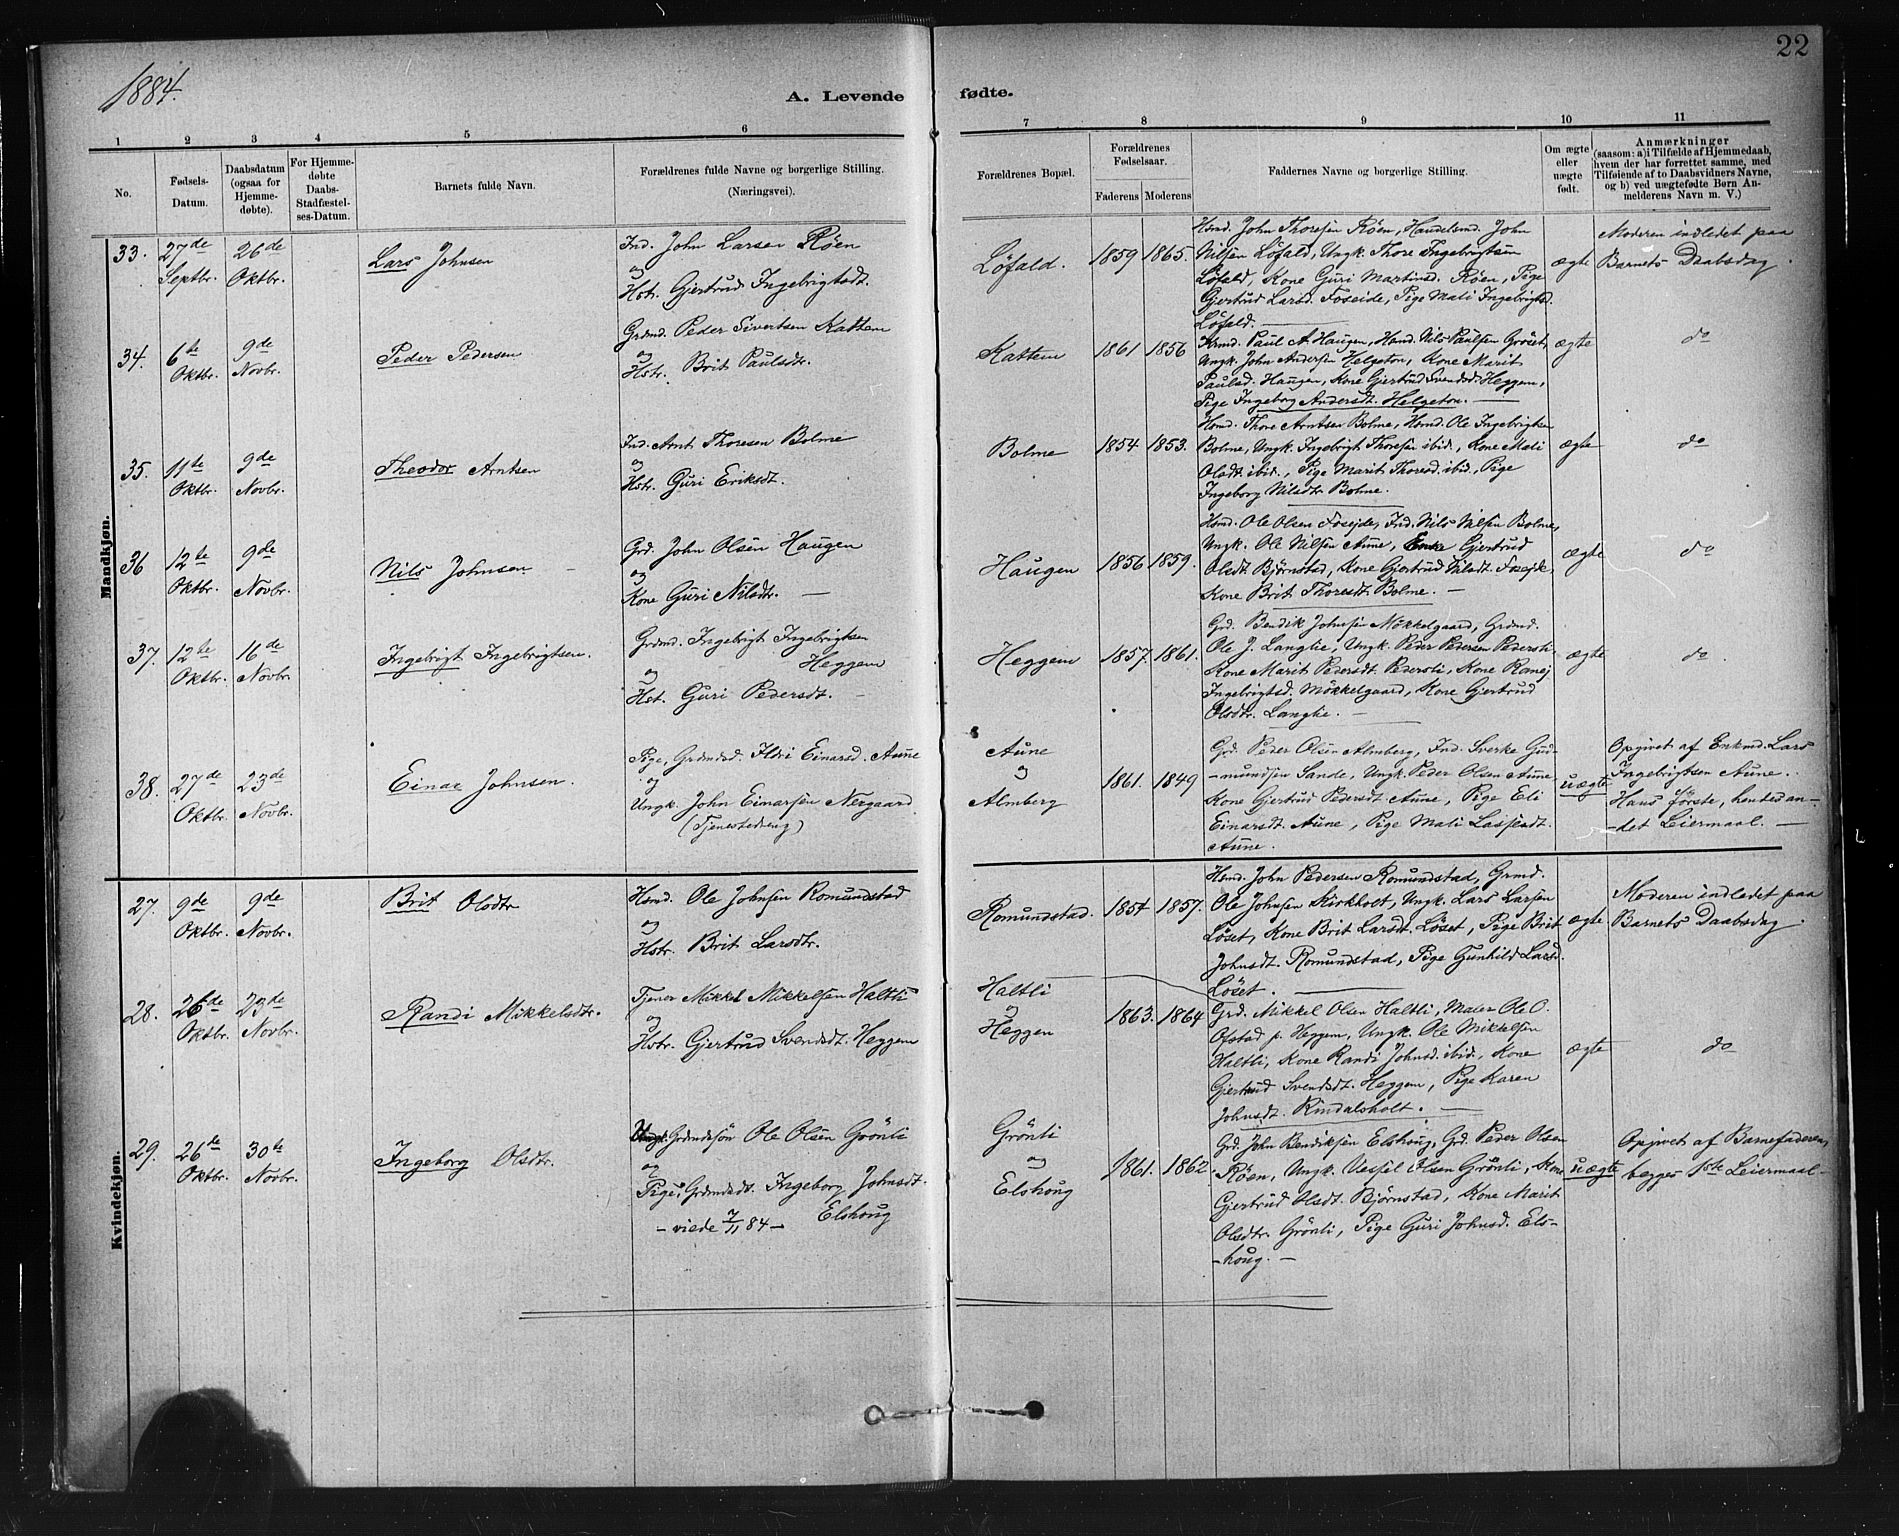 22
1884.
A. Levende fødte.
1 2 3 4 5 6 7 8 9 10 11
No.
Fødsels-Datum.
Daabsdatum (ogsaa for Hjemmedøbte).
For Hjemmedøbte Daabs-Stadfæstelses-Datum.
Barnets fulde Navn.
Forældrenes fulde Navne og borgerlige Stilling. (Næringsvei).
Forældrenes Bopæl.
Forældrenes Fødselsaar.
Faderens Moderens
Faddernes Navne og borgerlige Stilling.
Om ægte eller uægte født.
Anmærkninger
(saasom: a) i Tilfælde af Hjemmedaab,
hvem der har forrettet samme, med
Tilføiende af to Daabsvidners Navne,
og b) ved uægtefødte Børn Anmelderens Navn m. V.)
Mandkjøn.
33. 27de Septbr. 26de Oktbr.
Lars Johnsen
Ind. John Larsen Röen
og
Hstr. Gjertrud Ingebrigtsdt.
Löfald. 1859 1865.
Hsmd. John Thoresen Röen, Handelsmd. John
Nilsen Löfald, Ungk. Thore Ingebrigtsen
Löfald, Kone Guri Martinsd. Röen, Pige
Gjertrud Larsd. Foseide, Pige Mali Ingebrigtsd.
Löfald.
ægte
Moderen indledet paa
Barnets Daabsdag.
34. 6te Oktbr. 9de Novbr.
Peder Pedersen
Grdmd. Peder Sivertsen Kattem
og
Hstr. Brit Paulsdtr.
Kattem 1861 1856
Hsmd. Paul A. Haugen, Hsmd. Nils Paulsen Gröset,
Ungk. John Andersen Helgeton, Kone Marit
Paulsd. Haugen, Kone Gjertrud Svendsd. Heggem,
Pige Ingeborg Andersdt. Helgeton.
ægte
do
35. 11te Oktbr. 9de Novbr.
Theodor Arntsen
Ind. Arnt Thoresen Bolme
og
Hstr. Guri Eriksdt.
Bolme 1854 1853.
Hsmd. Thore Arntsen Bolme, Hsmd. Ole Ingebrigtsen
Bolme, Ungk. Ingebrigt Thoresen ibid, Kone Mali
Olsdt. ibid., Pige Marit Thoresd. ibid, Pige
Ingeborg Nilsdtr. Bolme.
ægte
do
36 12te Oktbr. 9de Novbr.
Nils Johnsen
Grd. John Olsen Haugen
og
Kone Guri Nilsdtr.
Haugen 1856 1859.
Hsmd. Ole Olsen Fosejde, Ind. Nils Nilsen Bolme,
Ungk. Ole Nilsen Aune, Enke Gjertrud
Olsdt. Björnstad, Kone Gjertrud Nilsdt. Fosejde,
Kone Brit Thoresdt. Bolme.
ægte
do
37. 12te Oktbr. 16de Novbr.
Ingebrigt Ingebrigtsen.
Grdmd. Ingebrigt Ingebrigtsen
Heggem
og
Hst. Guri Pedersdt.
Heggem 1857. 1861.
Grd. Bendik Johnsen Mökkelgaard, Grdmd.
Ole J. Langlie, Ungk. Peder Pedersen Pedersti
Kone Marit Pedersdt. Pedersti, Kone Ranej
Ingebrigtsd. Mökkelgaard, Kone Gjertrud
Olsdtr. Langlie.
ægte
do
38. 27de Oktbr. 23de Novbr.
Einar Johnsen.
Pige, Grdmdsd. Ildri Einarsd. Aune
og
Ungk. John Einarsen Nergaard
(Tjenestedreng)
Aune
og
Almberg 1861. 1849
Grd. Peder Olsen Almberg, Ind. Sverke Gud-
-mundsen Sande, Ungk. Peder Olsen Aune
Kone Gjertrud Pedersdt. Aune, Pige Eli
Einarsdt. Aune, Pige Mali Lassesdt.
Aune.
uægte
Opgivet af Enkmd. Lars
Ingebrigtsen Aune.
Hans förste, hendes an-
-det Leiermaal.
Kvindekjøn.
27. 9de Oktbr. 9de Novbr.
Brit Olsdtr
Hsmd. Ole Johnsen Romundstad
og
Hstr. Brit Larsdtr.
Romundstad. 1854 1857.
Hsmd. John Pedersen Romundstad, Grmd.
Ole Johnsen Kirkholt, Ungk. Lars Larsen
Löset, Kone Brit Larsdt. Löset, Pige Brit
Johnsdt. Romundstad, Pige Gunhild Larsd.
Löset.
ægte
Moderen indledet paa
Barnets Daabsdag.
28. 26de Oktbr. 23de Novbr.
Randi Mikkelsdtr.
Tjener Mikkel Mikkelsen Haltli
og
Hstr. Gjertrud Svendsdt. Heggem
Haltli
og
Heggen 1863. 1864
Grd. Mikkel Olsen Haltli, Maler Ole O.
Ofstad p. Heggem, Ungk. Ole Mikkelsen
Haltli, Kone Randi Johnsd. ibid., Kone
Gjertrud Svendsdt. Heggem, Pige Karen
Johnsdt. Rindalsholt.
ægte
do
29. 26de Oktbr. 30te Novbr.
Ingeborg Olsdtr.
Ungk. Grdmdssön Ole Olsen Grönli
og
Pige, Grdmdsdt. Ingeborg Johnsdt.
Elshoug
- viede 7/11 84 -
Grönli
og
Elshoug 1861. 1862.
Grd. John Bendiksen Elshoug, Grd. Peder Olsen
Röen, Ungk. Vessel Olsen Grönli, Kone
Gjertrud Olsdt. Björnstad, Kone Marit
Olsdtr. Grönli, Pige Guri Johnsd. Els-
-houg.
uægte
Opgivet af Barnefaderen,
begges 1ste Leiermaal